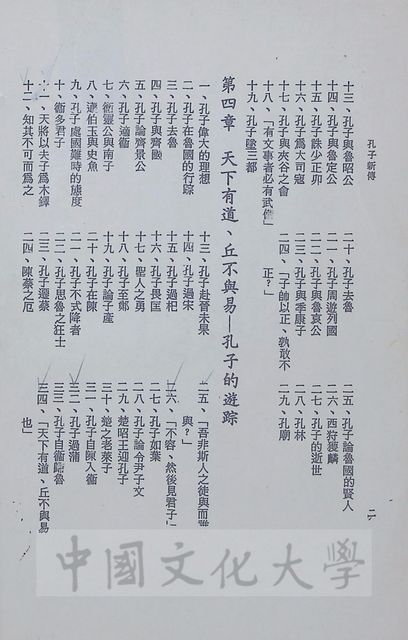 孔子新傳
二
十三、孔子與魯昭公
十四、孔子與魯定公
十五、孔子誅少正卯
十六、孔子爲大司寇
十七、孔子與夾谷之會
十八、「有文事者必有武備」
十九、孔子墮三都
二十、孔子去魯
二一、孔子周遊列國
二二、孔子與魯哀公
二三、孔子與季康子
二四、「子帥以正、孰敢不
正?」
二五、孔子論魯國的賢人
二六、西狩獲麟
二七、孔子的逝世
二八、孔林
二九、孔廟
第四章　天下有道、丘不與易—孔子的遊踪
一、孔子偉大的理想
二、孔子在魯國的行踪
三、孔子去魯
四、孔子與齊國
五、孔子論齊景公
六、孔子適衞
七、衞靈公與南子
八、遽伯玉與史魚
九、孔子處國難時的態度
十、衞多君子
十一、天將以夫子爲木鐸
十二、知其不可而爲之
十三、孔子赴晉未果
十四、孔子過宋
十五、孔子過杞
十六、孔子畏匡
十七、聖人之勇
十八、孔子至鄭
十九、孔子論子產
二十、孔子在陳
二一、孔子不式降者
二二、孔子思魯之狂士
二三、孔子遷蔡
二四、陳蔡之厄
二五、「吾非斯人之徒與而誰
與?」
二六、「不容、然後見君子」
二七、孔子如葉
二八、孔子論令尹子文
二九、楚昭王迎孔子
三十、楚之老萊子
三一、孔子自陳入衞
三二、孔子過蒲
三三、孔子自衞歸魯
三四、「天下有道、丘不與易
也」
中國文化大學